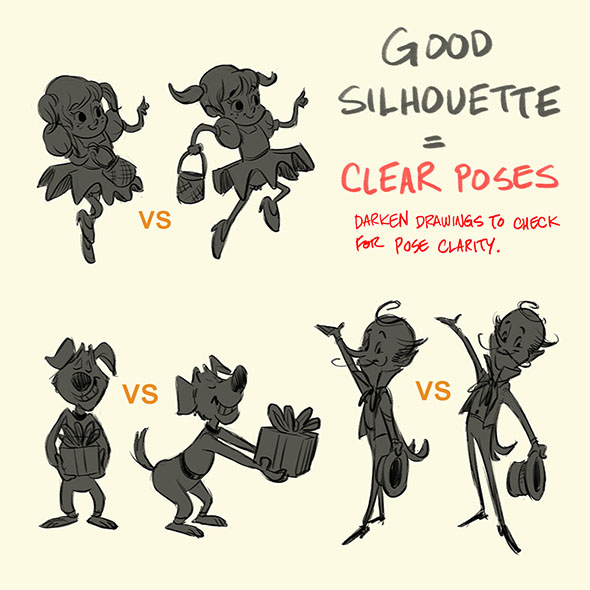 GOOD
SILHOUETTE
=
CLEAR POSES
DARKEN DRAWINGS TO CHECK
FOR POSE CLARITY.
VS
VS
VS